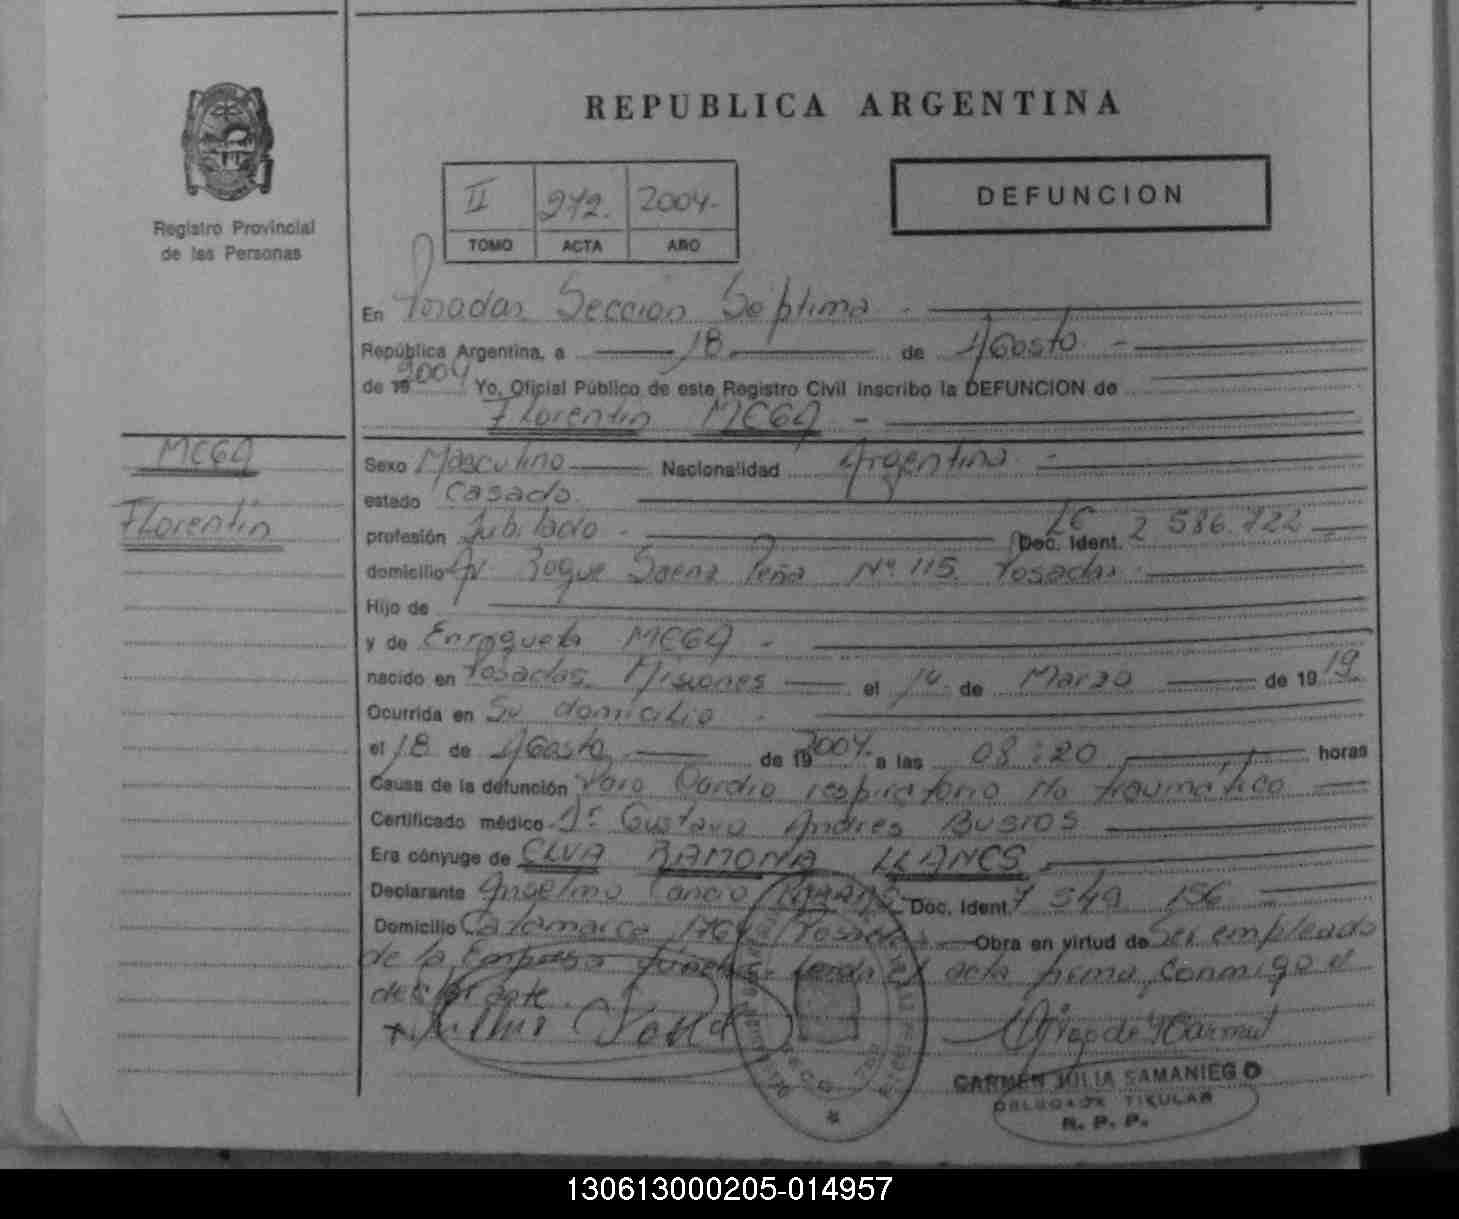 REPUBLICA ARGENTINA
Registro Provincial
de las Personas
DEFUNCION
II 272. 2004-
TOMO ACTA AÑO
En Posadas Sección Séptima -
República Argentina, a 18 de Agosto -
de 19 2004 Yo, Oficial Público de este Registro Civil inscribo la DEFUNCION de
Florentin MEZA -
MEZA
Florentin
Sexo Masculino Nacionalidad Argentina -
estado Casado.
profesión Jubilado - Doc. Ident. LE 2 586.722
domicilio Av Roque Saenz Peña Nº 115. Posadas
Hijo de
y de Enriqueta MEZA -
nacido en Posadas Misiones el 14 de Marzo de 19 19
Ocurrida en Su domicilio -
el 18 de Agosto de 19 2004- a las 08:20 horas
Causa de la defunción Paro Cardio respiratorio No traumático
Certificado médico Dr Gustavo Andres BUSTOS
Era cónyuge de ELVA RAMONA LLANES
Declarante Anselmo Doc. Ident. 7 549 156
Domicilio Catamarca Posadas Obra en virtud de Ser empleado
de la Empresa acta firma conmigo el
declarante.
CARMEN JULIA SAMANIEGO
DELEGADA TITULAR
R. P. P.
130613000205-014957